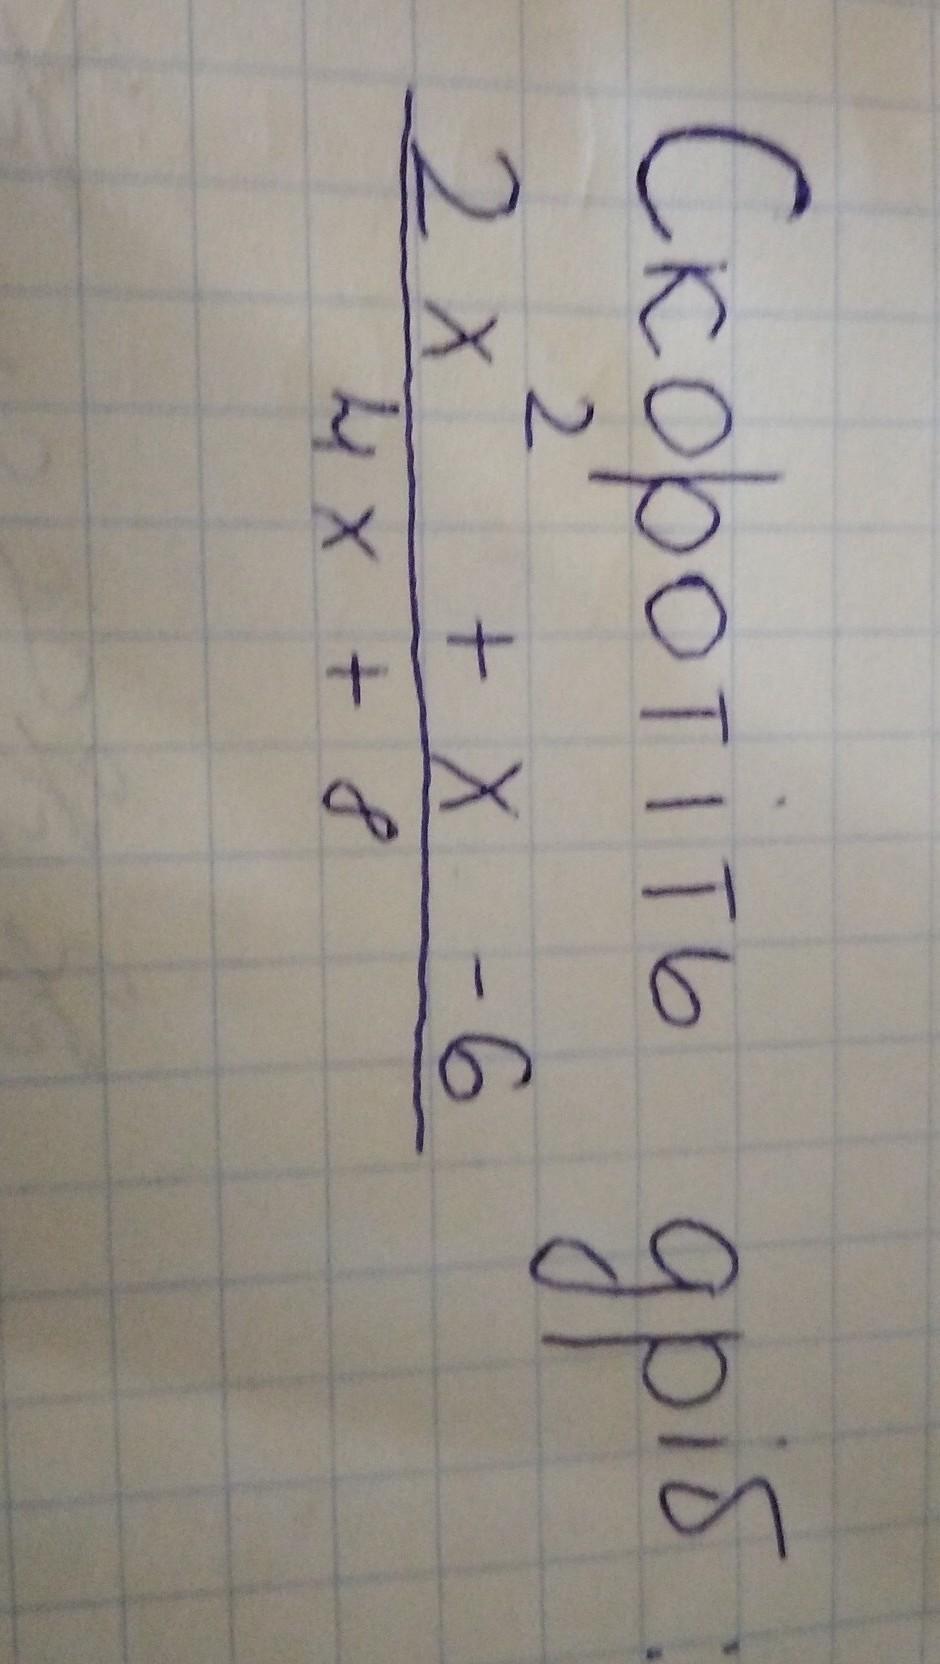 Скоротіть дріб:
2x² + x - 6
4x + 8